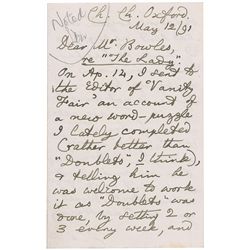 Noted
Ch. Ch. Oxford.
May 12/91
Dear Mr. Bowles,
re "The Lady".
On Ap. 14, I sent to
the Editor of "Vanity
Fair" an account of
a new word-puzzle
I lately completed
(rather better than
"Doublets", I think),
& telling him he
was welcome to work
it as "Doublets" was
done, by setting 2 or
3 every week, and